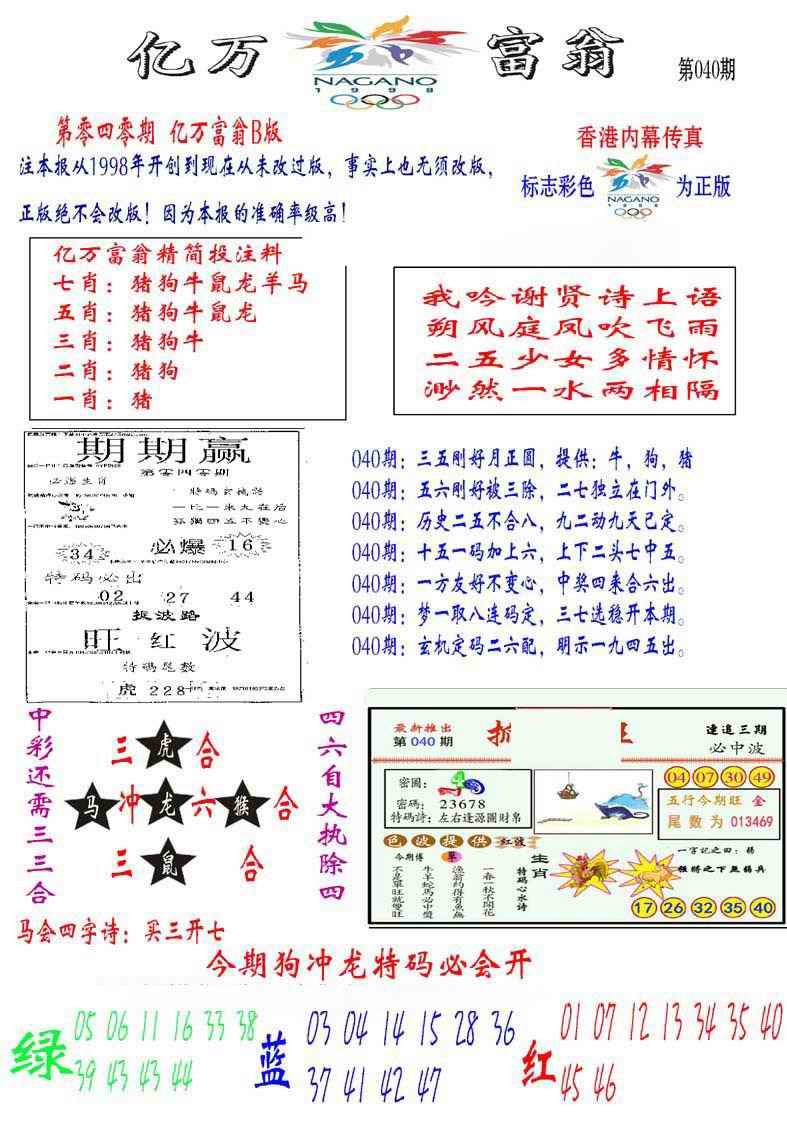 亿万富翁
NAGANO
1998
第040期
第零四零期 亿万富翁B版
注本报从1998年开创到现在从未改过版，事实上也无须改版，
正版绝不会改版！因为本报的准确率级高！
香港内幕传真
标志彩色
NAGANO
1998
为正版
亿万富翁精简投注料
七肖：猪狗牛鼠龙羊马
五肖：猪狗牛鼠龙
三肖：猪狗牛
二肖：猪狗
一肖：猪
我吟谢贤诗上语
朔风庭凤吹飞雨
二五少女多情怀
渺然一水两相隔
期期赢
第零四零期
必爆
34
16
特码必出
02 27 44
捉波路
旺红波
特码尾数
虎 228
040期：三五刚好月正圆，提供：牛，狗，猪
040期：五六刚好被三除，二七独立在门外。
040期：历史二五不合八，九二动九天已定。
040期：十五一码加上六，上下二头七中五。
040期：一方友好不变心，中奖四来合六出。
040期：梦一取八连码定，三七选稳开本期。
040期：玄机定码二六配，明示一九四五出。
中彩还需三三合
三 虎 合
马 冲 龙 六 猴 合
三 鼠 合
四六自大执除四
最新推出
第 040 期
连追三期
必中波
密圖：
密碼： 23678
特碼詩：左右逢源圖財帛
04 07 30 49
五行今期旺 金
尾数为 013469
色波提供 红波
今期博
草
不是單旺就雙旺
牛羊蛇馬必中獎
漁翁約得有魚無
一春一秋不開花
特碼心水诗
生肖
17 26 32 35 40
马会四字诗：买三开七
今期狗冲龙特码必会开
绿
05 06 11 16 33 38
39 43 43 44
蓝
03 04 14 15 28 36
37 41 42 47
红
01 07 12 13 34 35 40
45 46